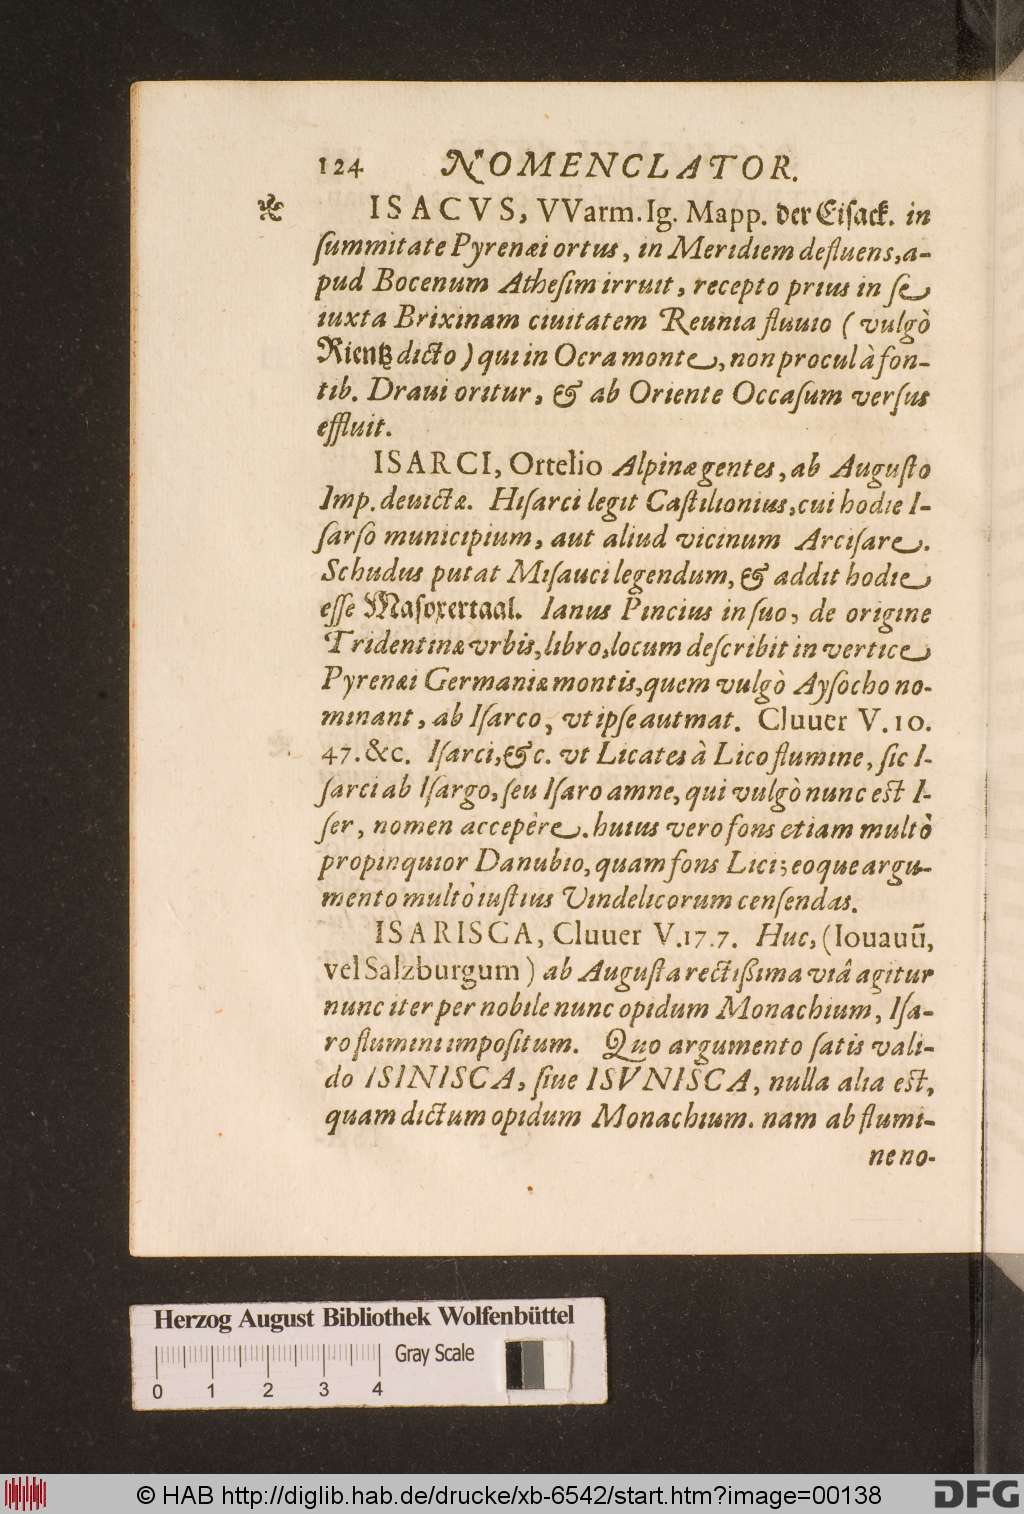 124 NOMENCLATOR.
ISACVS, VVarm. Ig. Mapp. der Eisack. in
ſummitate Pyrenæi ortus, in Meridiem defluens, a-
pud Bocenum Atheſim irruit, recepto prius in ſe
iuxta Brixinam ciuitatem Reunia fluuio (vulgò
Rientz dicto) qui in Ocra monte, non procul à fon-
tib. Draui oritur, & ab Oriente Occaſum verſus
effluit.
ISARCI, Ortelio Alpinæ gentes, ab Auguſto
Imp. deuictæ. Hiſarci legit Caſtilionius, cui hodie I-
ſarſo municipium, aut aliud vicinum Arciſare.
Schudus putat Miſauci legendum, & addit hodie
eſſe Maſoxertaal. Ianus Pincius in ſuo, de origine
Tridentinæ vrbis, libro, locum deſcribit in vertice
Pyrenæi Germaniæ montis, quem vulgò Ayſocho no-
minant, ab Iſarco, vt ipſe autmat. Cluuer V. 10.
47. &c. Iſarci, &c. vt Licates à Lico flumine, ſic I-
ſarci ab Iſargo, ſeu Iſaro amne, qui vulgò nunc eſt I-
ſer, nomen accepêre. huius vero fons etiam multò
propinquior Danubio, quam fons Lici; eoque argu-
mento multò iuſtius Vindelicorum cenſendas.
ISARISCA, Cluuer V. 17. 7. Huc, (Iouauū,
vel Salzburgum) ab Auguſta rectißima viâ agitur
nunc iter per nobile nunc opidum Monachium, Iſa-
ro flumini impoſitum. Quo argumento ſatis vali-
do ISINISCA, ſiue ISVNISCA, nulla alia eſt,
quam dictum opidum Monachium. nam ab flumi-
ne no-
Herzog August Bibliothek Wolfenbüttel
Gray Scale
0 1 2 3 4
© HAB http://diglib.hab.de/drucke/xb-6542/start.htm?image=00138
DFG